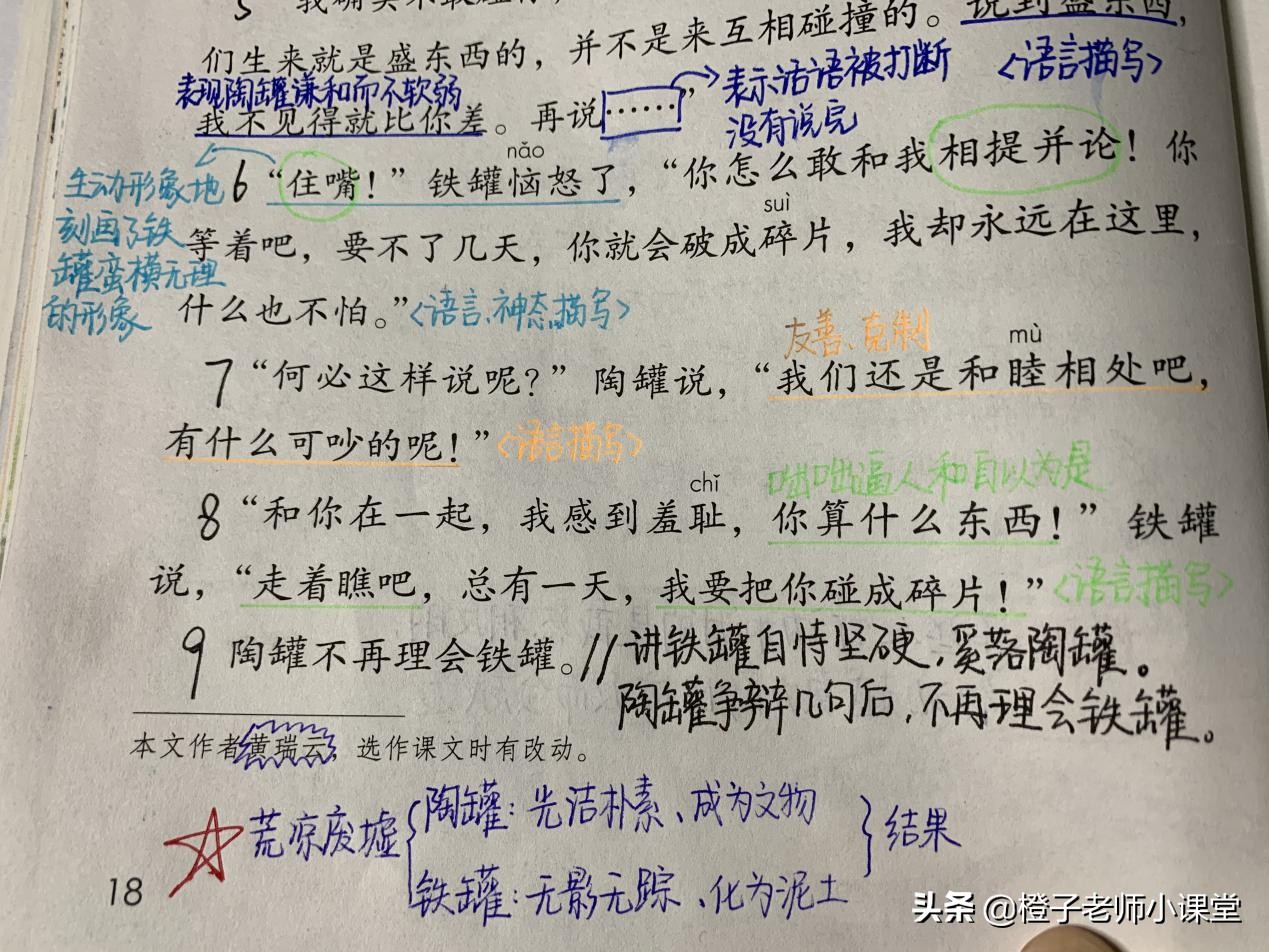 5 我确实不敢碰你,
们生来就是盛东西的，并不是来互相碰撞的。说到盛东西，
表现陶罐谦和而不软弱
表示话语被打断
<语言描写>
我不见得就比你差。再说……”
没有说完
nǎo
生动形象地
6 “住嘴！”铁罐恼怒了，“你怎么敢和我相提并论！你
suì
刻画了铁
等着吧，要不了几天，你就会破成碎片，我却永远在这里，
罐蛮横无理
的形象
什么也不怕。”<语言、神态描写>
友善、克制
mù
7 “何必这样说呢？”陶罐说，“我们还是和睦相处吧，
有什么可吵的呢！”<语言描写>
咄咄逼人和自以为是
chǐ
8 “和你在一起，我感到羞耻，你算什么东西！”铁罐
说，“走着瞧吧，总有一天，我要把你碰成碎片！”<语言描写>
9 陶罐不再理会铁罐。// 讲铁罐自恃坚硬，奚落陶罐。
陶罐争辩几句后，不再理会铁罐。
本文作者黄瑞云，选作课文时有改动。
荒凉废墟
陶罐：光洁朴素、成为文物
铁罐：无影无踪、化为泥土
结果
18
头条 @橙子老师小课堂